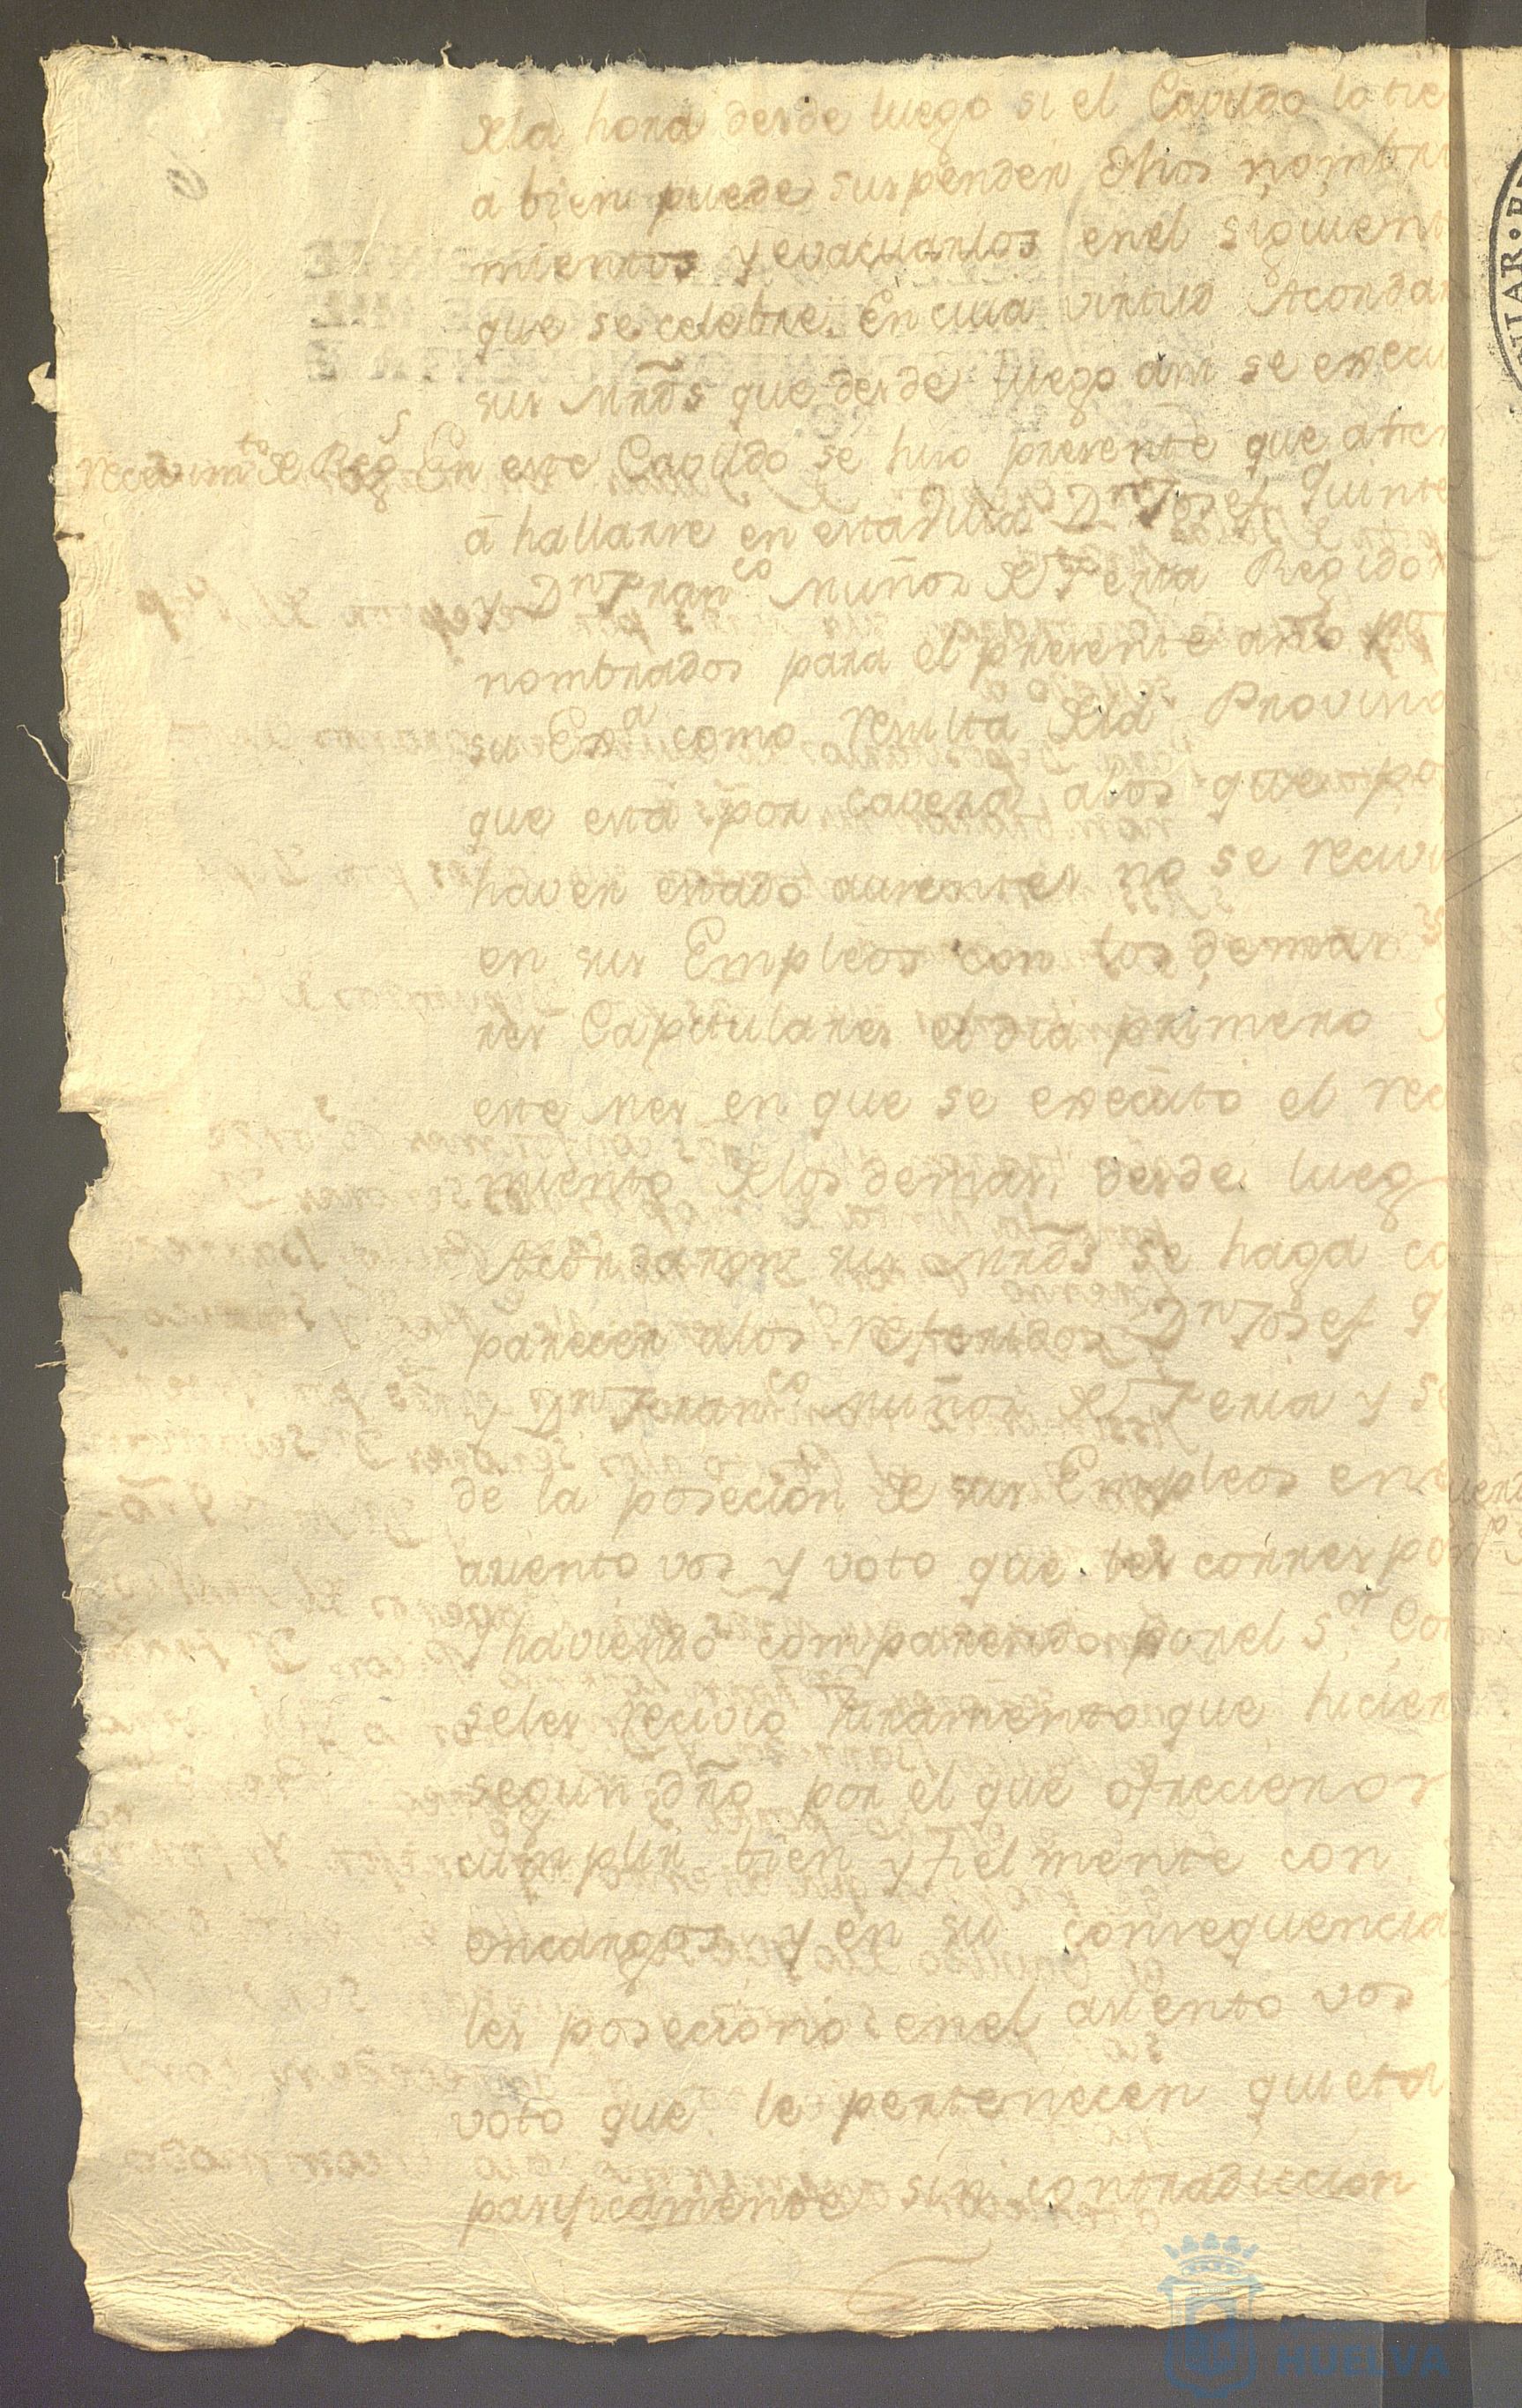 de la hora desde luego si el Cavildo lo tie
â bien puede suspender dhos nombra
mientos y evacuarlos en el siguient
que se celebre. En cuia virtud Acordar
sus Mrds. que desde luego asi se execu
recivim.to de Reg.s En este Cavildo se hizo presente que â tien
â hallarse en esta Villa D.n Josef Quinte
y D.n Fran.co Muñoz de Feria Regidor
nombrados para el presente año p.r
su Ex.a como resulta de la Provis
que está por caveza, a los que po
haver estado ausentes no se reciví
en sus Empleos con los demas S.
res Capitulares el dia primero d
este Mes en que se executó el rec
miento de los demas, desde lueg
Acordaron sus Mrds. se haga co
parecer a los referidos D.n Josef Q
y D.n Fran.co Muñoz de Feria y se
de la posecion de sus Empleos en e
asiento vos y voto que les correspon
Y haviendo comparecido por el S.or Cor
seles recivió juramento que hicier
segun dro por el que ofrecieron
cumplir bien y fielmente con
encargos y en su consequencia
les posecionó en el asiento vos
voto que le pertenecen quieta
pasificamente sin contradiccion
HUELVA